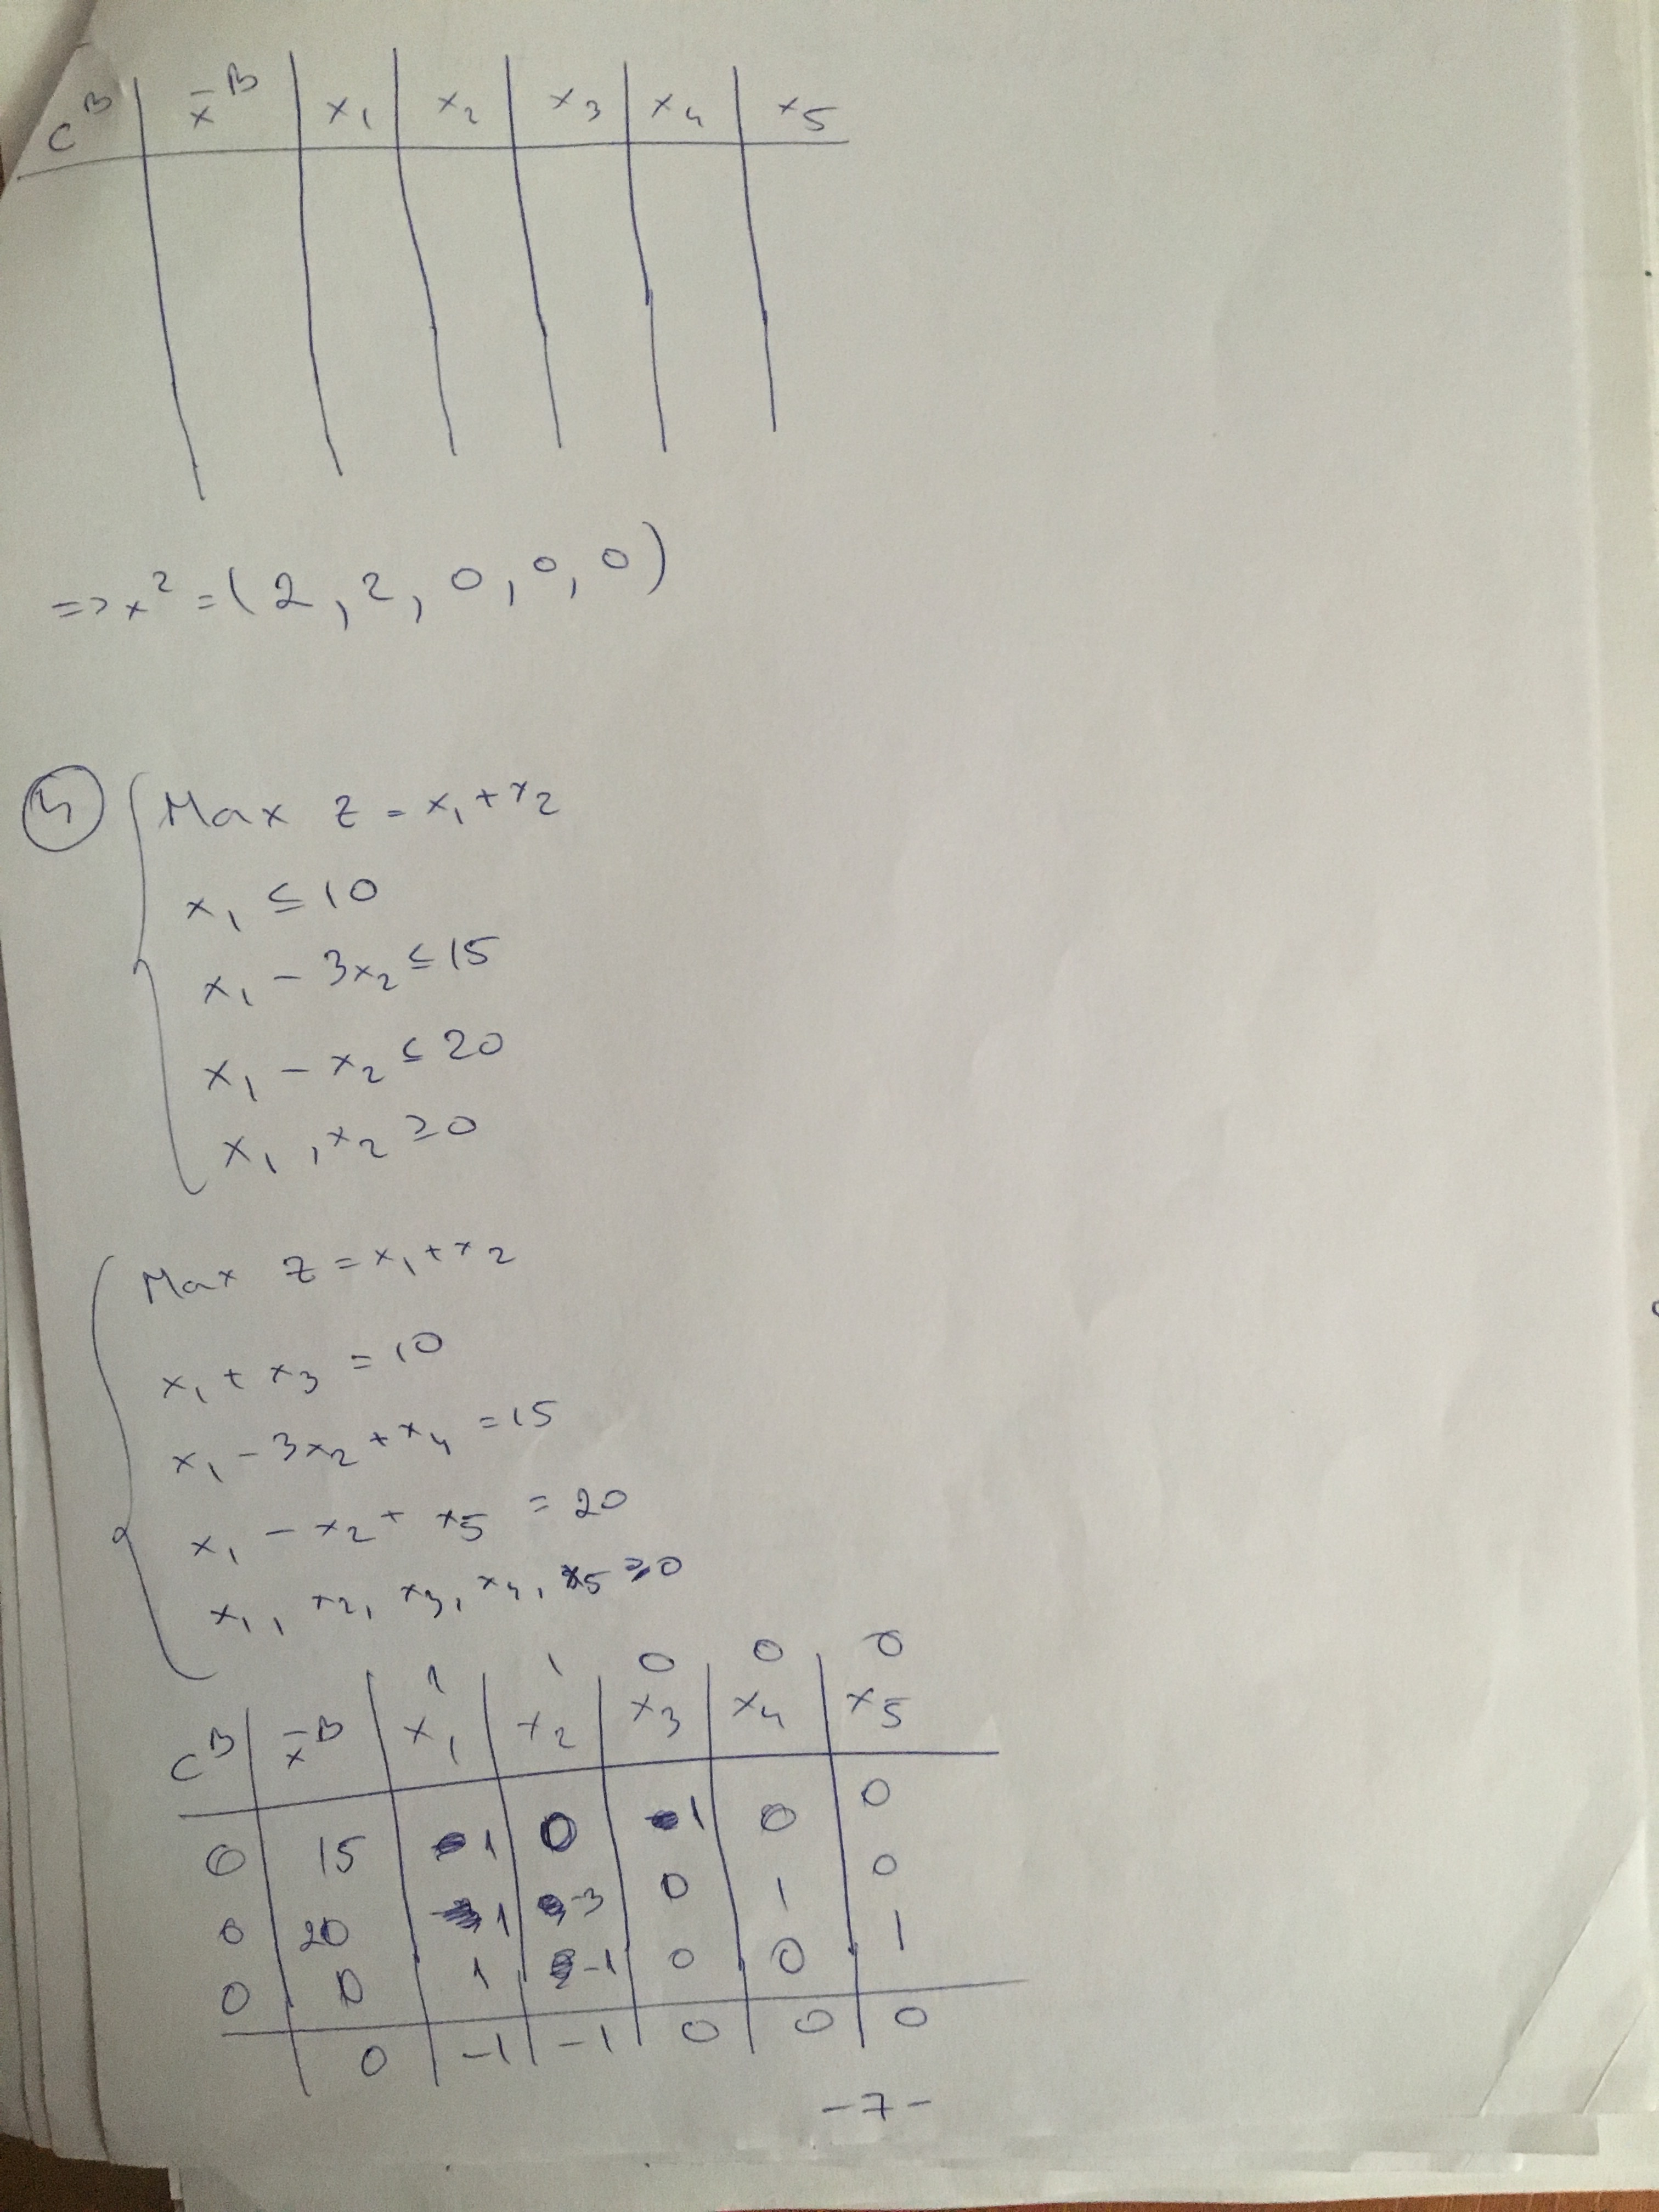 C^B | x̄^B | x₁ | x₂ | x₃ | x₄ | x₅
=> x² = (2, 2, 0, 0, 0)
④ Max z = x₁ + x₂
x₁ ≤ 10
x₁ - 3x₂ ≤ 15
x₁ - x₂ ≤ 20
x₁, x₂ ≥ 0
Max z = x₁ + x₂
x₁ + x₃ = 10
x₁ - 3x₂ + x₄ = 15
x₁ - x₂ + x₅ = 20
x₁, x₂, x₃, x₄, x₅ ≥ 0
1 1 0 0 0
C^B | x̄^B | x₁ | x₂ | x₃ | x₄ | x₅
0 | 15 | 1 | 0 | 1 | 0 | 0
0 | 20 | 1 | -3 | 0 | 1 | 0
0 | 0 | 1 | -1 | 0 | 0 | 1
0 | -1 | -1 | 0 | 0 | 0
-7-